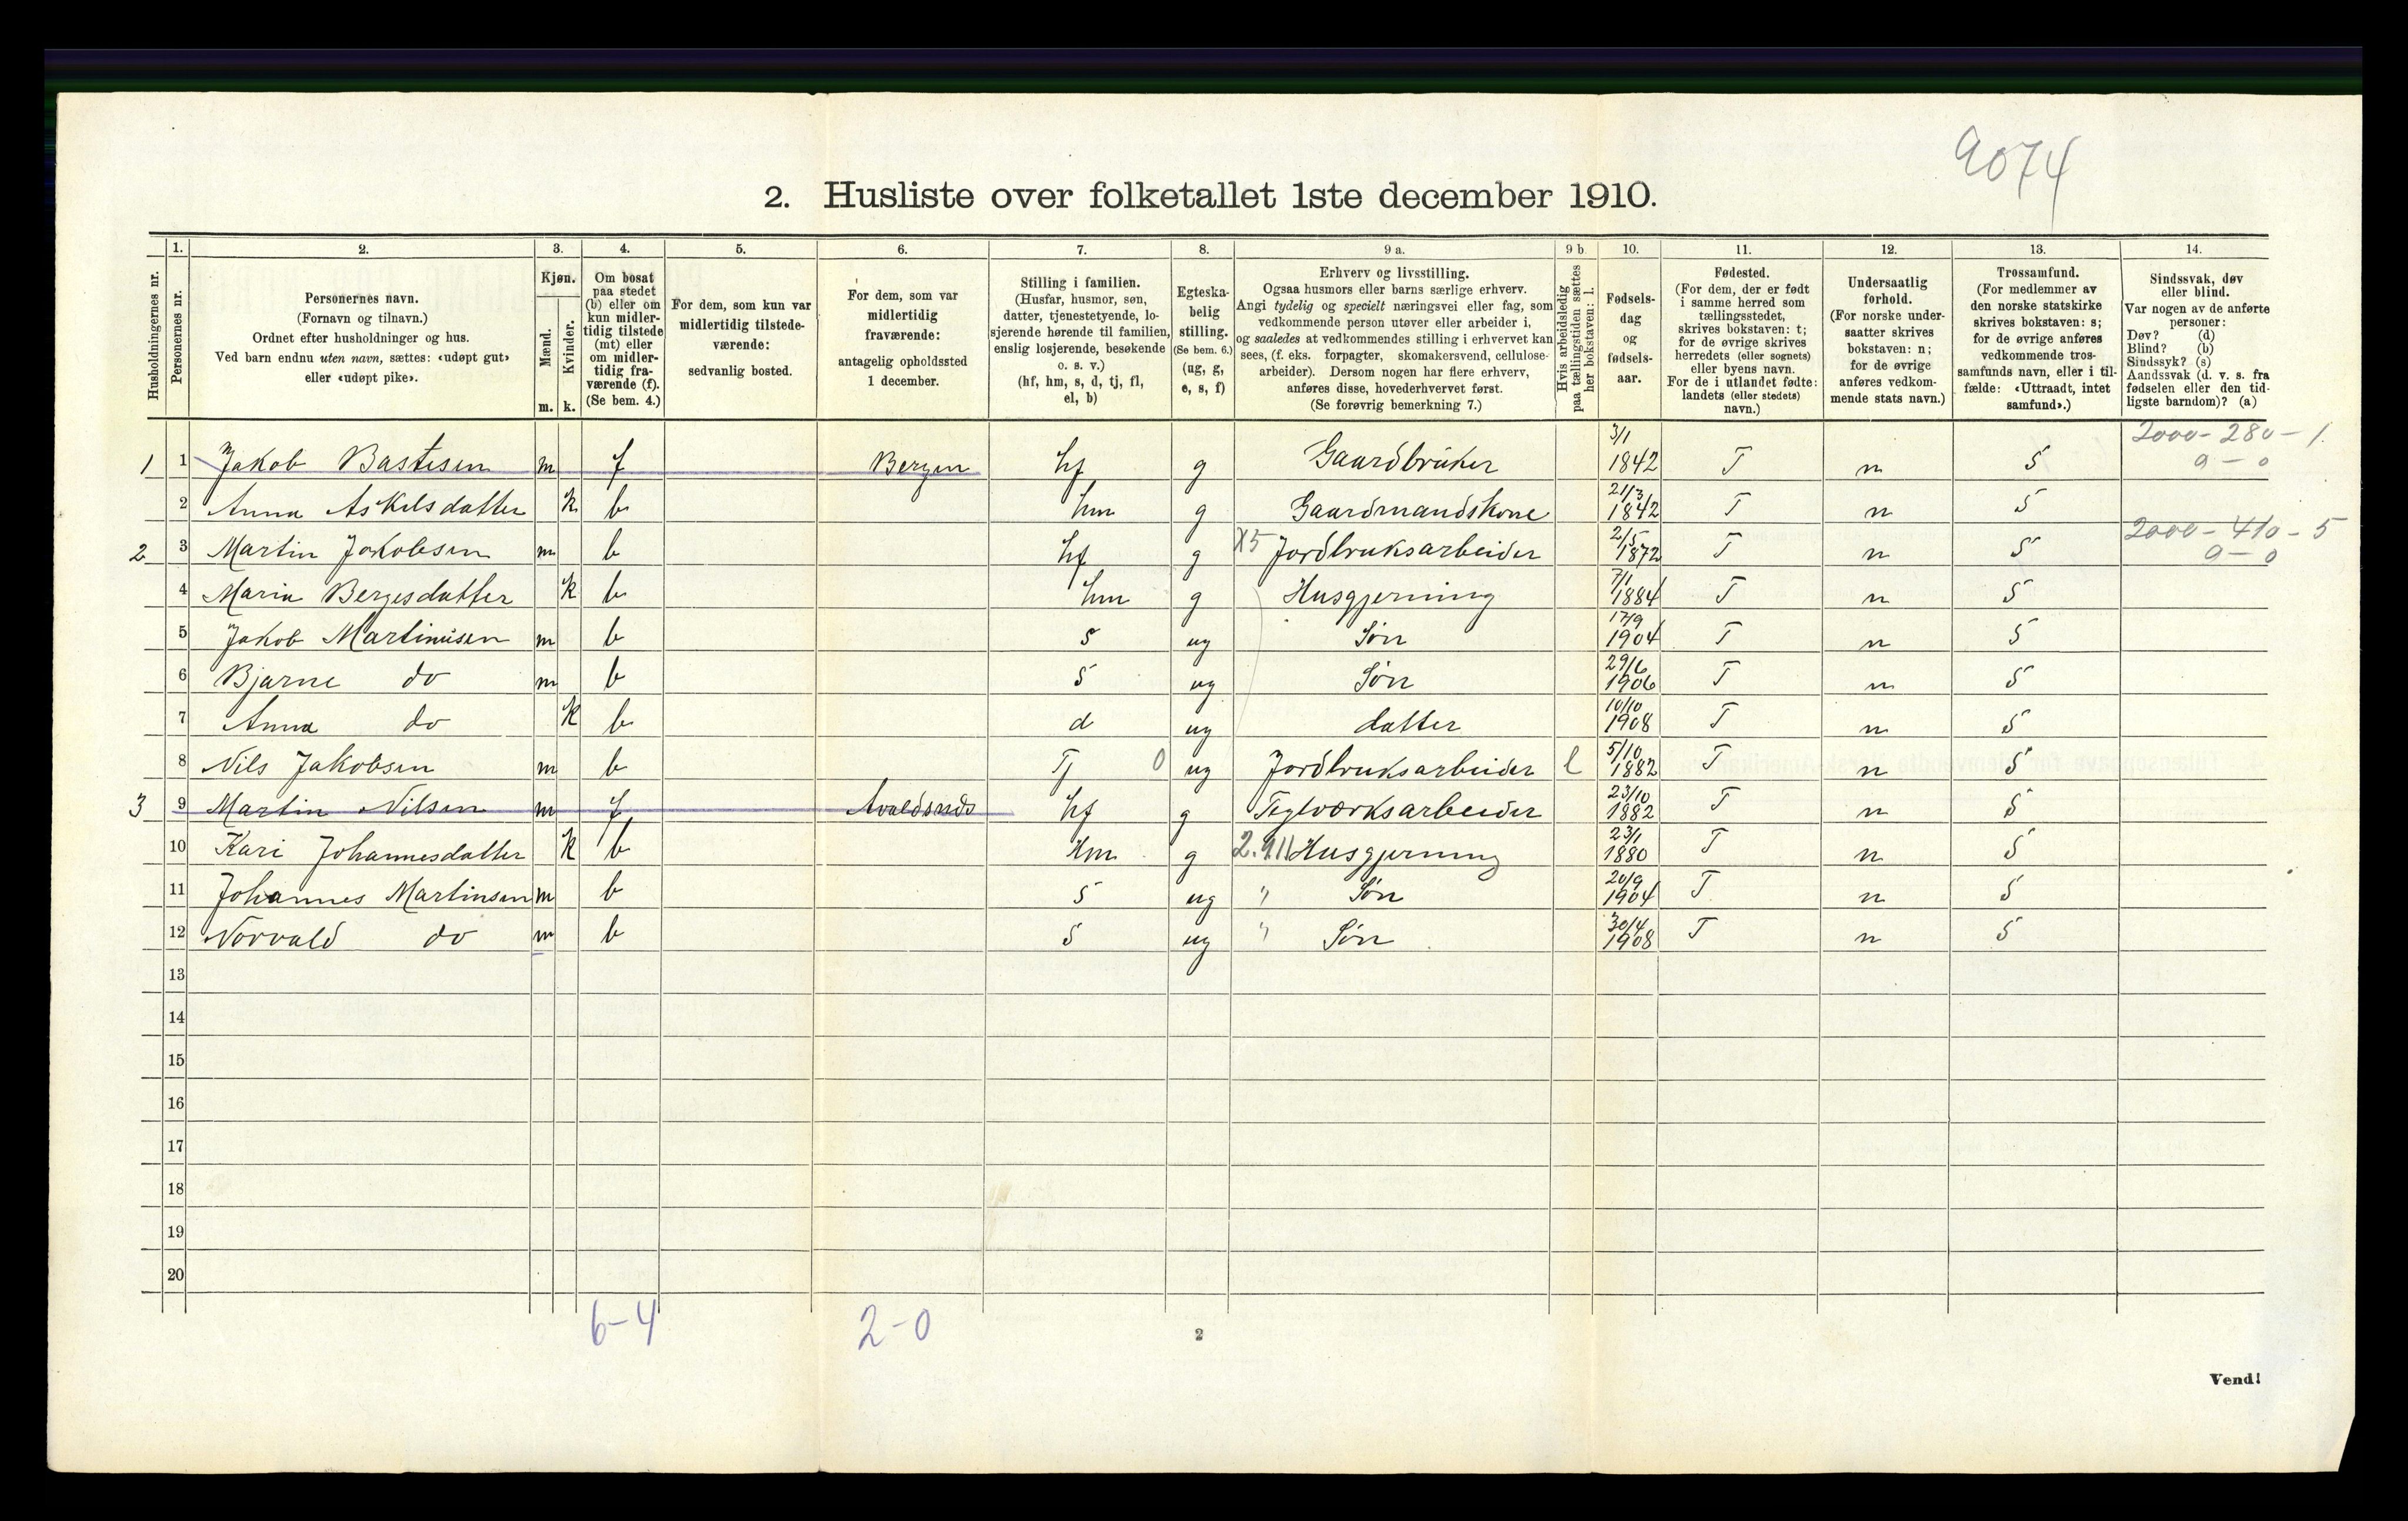 9074
2. Husliste over folketallet 1ste december 1910.
1. 2. 3. 4. 5. 6. 7. 8. 9 a. 9 b 10. 11. 12. 13. 14.
Husholdningernes nr.
Personernes nr.
Personernes navn.
(Fornavn og tilnavn.)
Ordnet efter husholdninger og hus.
Ved barn endnu uten navn, sættes: «udøpt gut»
eller «udøpt pike».
Kjøn.
Mænd.
Kvinder.
m. k.
Om bosat
paa stedet
(b) eller om
kun midler-
tidig tilstede
(mt) eller
om midler-
tidig fra-
værende (f).
(Se bem. 4.)
For dem, som kun var
midlertidig tilstede-
værende:
sedvanlig bosted.
For dem, som var
midlertidig
fraværende:
antagelig opholdssted
1 december.
Stilling i familien.
(Husfar, husmor, søn,
datter, tjenestetyende, lo-
sjerende hørende til familien,
enslig losjerende, besøkende
o. s. v.)
(hf, hm, s, d, tj, fl,
el, b)
Egteska-
belig
stilling.
(Se bem. 6.)
(ug, g,
e, s, f)
Erhverv og livsstilling.
Ogsaa husmors eller barns særlige erhverv.
Angi tydelig og specielt næringsvei eller fag, som
vedkommende person utøver eller arbeider i,
og saaledes at vedkommendes stilling i erhvervet kan
sees, (f. eks. forpagter, skomakersvend, cellulose-
arbeider). Dersom nogen har flere erhverv,
anføres disse, hovederhvervet først.
(Se forøvrig bemerkning 7.)
Hvis arbeidsledig
paa tællingstiden sættes
her bokstaven: l.
Fødsels-
dag
og
fødsels-
aar.
Fødested.
(For dem, der er født
i samme herred som
tællingsstedet,
skrives bokstaven: t;
for de øvrige skrives
herredets (eller sognets)
eller byens navn.
For de i utlandet fødte:
landets (eller stedets)
navn.)
Undersaatlig
forhold.
(For norske under-
saatter skrives
bokstaven: n;
for de øvrige
anføres vedkom-
mende stats navn.)
Trossamfund.
(For medlemmer av
den norske statskirke
skrives bokstaven: s;
for de øvrige anføres
vedkommende tros-
samfunds navn, eller i til-
fælde: «Uttraadt, intet
samfund».)
Sindssvak, døv
eller blind.
Var nogen av de anførte
personer:
Døv? (d)
Blind? (b)
Sindssyk? (s)
Aandssvak (d. v. s. fra
fødselen eller den tid-
ligste barndom)? (a)
1 1 Jakob Bastesen m f Bergen hf g Gaardbruker 3/1 1842 T n S 2000 - 280 - 1
a - 0
2 Anna Askelsdatter k b hm g Gaardmandskone 21/3 1842 T n S
2 3 Martin Jakobsen m b hf g X5 Jordbruksarbeider 2/5 1872 T n S 2000 - 410 - 5
a - 0
4 Maria Bergesdatter k b hm g Husgjerning 7/1 1884 T n S
5 Jakob Martinusen m b s ug Søn 17/9 1904 T n S
6 Bjarne do m b s ug Søn 29/6 1906 T n S
7 Anna do k b d ug datter 10/10 1908 T n S
8 Nils Jakobsen m b Tj 0 ug Jordbruksarbeider l 5/10 1882 T n S
3 9 Martin Nilsen m f Avaldsnes hf g Teglværksarbeider 23/10 1882 T n S
10 Kari Johannesdatter k b Hm g 2.911 Husgjerning 23/1 1880 T n S
11 Johannes Martinsen m b s ug " Søn 20/9 1904 T n S
12 Norvald do m b s ug " Søn 30/4 1908 T n S
13
14
15
16
17
18
19
20
6-4 2-0
2
Vend!